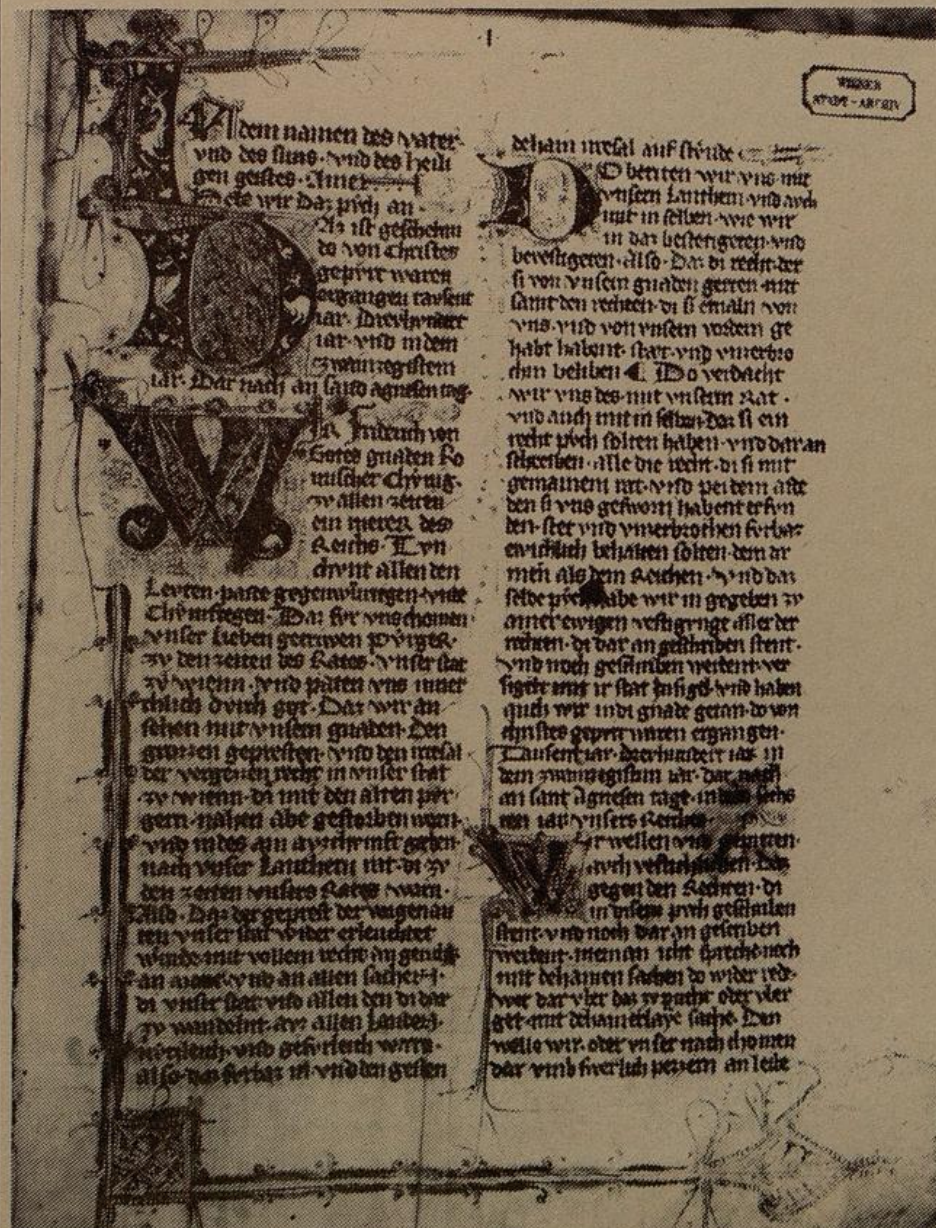 I
WIENER
STADT-ARCHIV
In dem namen des vater
vnd des suns vnd des heili
gen geistes Amen
hebt wir daz pvch an
Daz ist geschehen
do von Christes
gepvrt waren
ergangen tavsent
iar Drevhvndert
iar vnd in dem
zwainzegistem
iar Dar nach an sand agnesen tag
Wir Friderich von
Gotes gnaden Ro
mischer Chvnig
zv allen zeiten
ein merer des
Reichs Tvn
chvnt allen den
Levten paide gegenwurtigen vnde
Chvmftegen Daz fvr vns chomen
vnser lieben getriwen pvrger
zv den zeiten des Rates vnser stat
zv wienn vnd paten vns inner
chlich dvrch got Daz wir an
sehen mit vnsern gnaden Den
grozzen gepresten vnd den irresal
der vergenen recht in vnser stat
zv wienn di mit den alten pvr
gern nahen abe gestorben warn
vnd in des ain avzchvnft geben
nach vnser Lantherrn rat di zv
den zeiten vnsers Rates warn
Also Daz der geprest der
vnser stat wider erleuchtet
wurde mit vollem recht an
an vnd an allen sachen
di vnser stat vnd allen den di dar
zv wandelnt avz allen landen
vnd warn
also daz fvrbaz in vnd den gesten
dehain irresal avf stvnde
Do berieten wir vns mit
vnsern Lantherrn vnd avch
mit in selben wie wir
in daz bestetigeten vnd
bevestigeten Also Daz di recht der
si von vnsern gnaden gerten mit
samt den rechten di si emaln von
vns vnd von vnsern vordern ge
habt habent stæt vnd vnzerbro
chen beliben Do verdacht
wir vns des mit vnserm Rat
vnd auch mit in selben daz si ein
recht pvch solten haben vnd dar an
schreiben alle die recht di si mit
gemainem rat vnd pei dem aide
den si vns gesworn habent erfvn
den stet vnd vnzerbrochen fvrbaz
ewichlich behalten solten dem ar
men als dem Reichen vnd daz
selbe pvch habe wir in gegeben zv
ainer ewigen vestigvnge aller der
rechten di dar an geschriben stent
vnd noch geschriben werdent ver
sigelt mit ir stat Insigel vnd haben
auch wir in di gnade getan do von
christes gepvrt waren ergangen
Tausent iar drevhundert iar in
dem zwainzegistim iar dar nach
an sant Agnesen tage in dem sechs
ten iar vnsers Reiches
Wir wellen vnd gepieten
avch Daz
gegen den Rechten di
in disem pvch geschriben
stent vnd noch dar an gescriben
werdent nieman icht spreche noch
mit dehainen sachen do wider rede
wer dar vber daz zv pricht oder vber
get mit dehainerlaye sache Den
welle wir oder vnser nach chomen
dar vmb swerlich pezzern an leibe